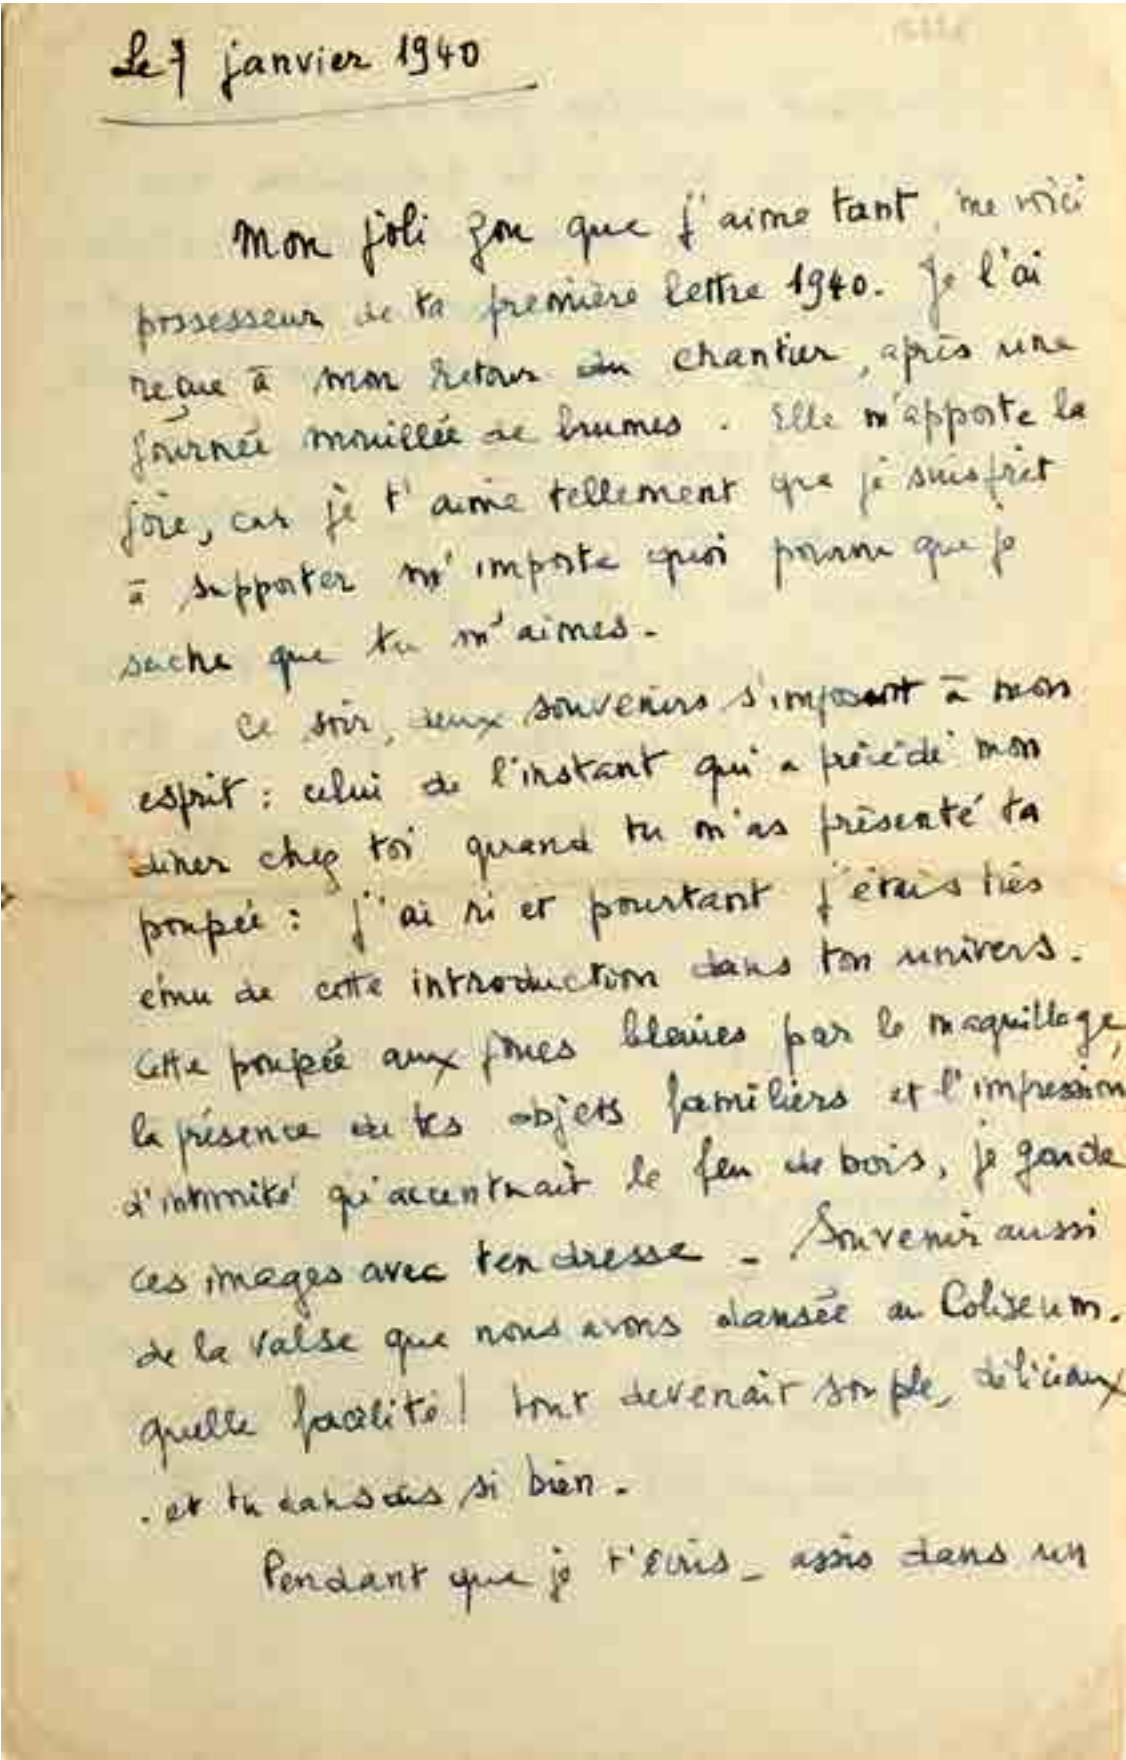 Le 7 janvier 1940
Mon joli zou que j'aime tant, me voici
possesseur de ta première lettre 1940. Je l'ai
reçue à mon retour du chantier, après une
journée mouillée de brumes. Elle m'apporte la
joie, car je t'aime tellement que je suis prêt
à supporter n'importe quoi pourvu que je
sache que tu m'aimes.
Ce soir, deux souvenirs s'imposent à mon
esprit : celui de l'instant qui a précédé mon
diner chez toi quand tu m'as présenté ta
poupée : j'ai ri et pourtant j'étais très
ému de cette introduction dans ton univers.
Cette poupée aux joues bleuies par le maquillage,
la présence de tes objets familiers et l'impression
d'intimité qu'accentuait le feu de bois, je garde
ces images avec tendresse _ Souvenir aussi
de la valse que nous avons dansée au Coliseum.
quelle facilité ! tout devenait souple, délicieux
. et tu dansais si bien.
Pendant que je t'écris _ assis dans un